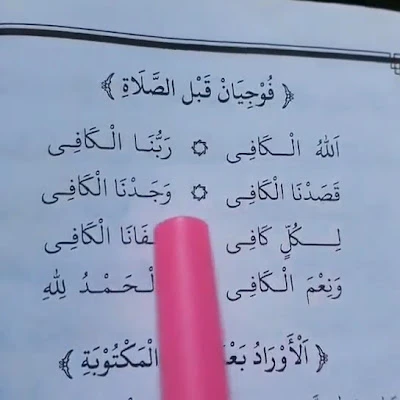 ﴿ فُوْجِيَانْ قَبْلَ الصَّلَاةِ ﴾
اَللهُ الْـكَافِى ۞ رَبُّنَا الْـكَافِى
قَصَدْنَا الْكَافِى ۞ وَجَدْنَا الْكَافِى
لِـكُلٍّ كَافِى الْكَافِى
وَنِعْمَ الْـكَافِى لِلّٰهِ
﴿ اَلْأَوْرَادُ الْمَكْتُوْبَةِ ﴾